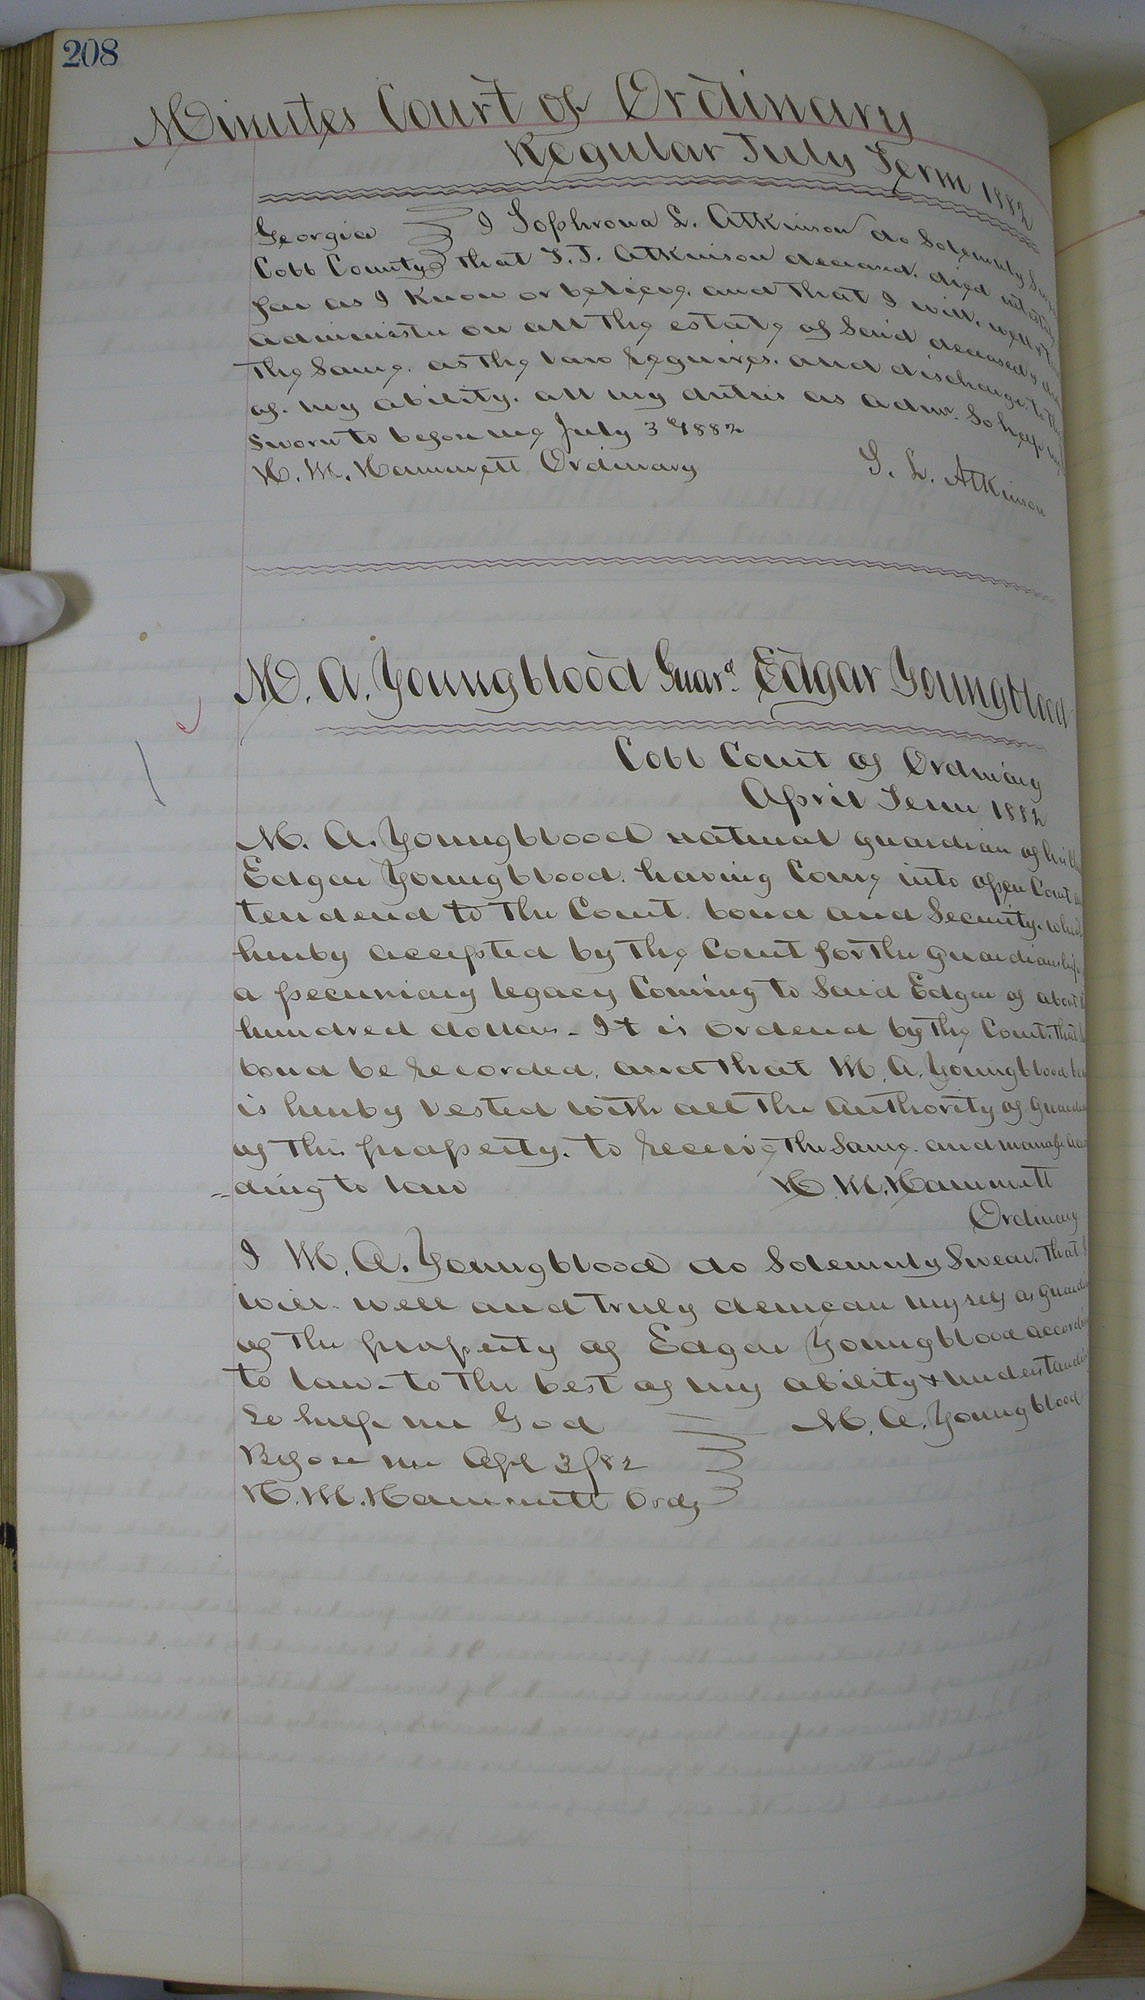 208
Minutes Court of Ordinary
Regular July Term 1882
Georgia I Sophrona L. Atkinson do Solemnly
Cobb County that T. J. Atkinson deceased. died
far as I Know or believe, and that I will, well &
administer on all the estate of said deceased,
the same, as the law requires. and discharge, to the
of my ability, all my duties as admr. So help
Sworn to before me July 3rd 1882
H. M. Hammett Ordinary S. L. Atkinson
M. A. Youngblood Guard. Edgar Youngblood
Cobb Court of Ordinary
April Term 1882
M. A. Youngblood natural guardian of
Edgar Youngblood. having Come into open Court
tendered to the Court. bond and Security.
hereby accepted by the Court for the guardianship
a pecuniary legacy Coming to said Edgar of about
hundred dollars - It is ordered by the Court. that
bond be recorded, and that M. A. Youngblood
is hereby vested with all the Authority of
of the property. to receive the same. and manage
ding to law H. M. Hammett
Ordinary
I M. A. Youngblood do Solemnly Swear. that I
will. well and truly demean myself as
of the property of Edgar Youngblood
to law - to the best of my ability &
So help me God M. A. Youngblood
Before me Apl 3/82
H. M. Hammett Ordy